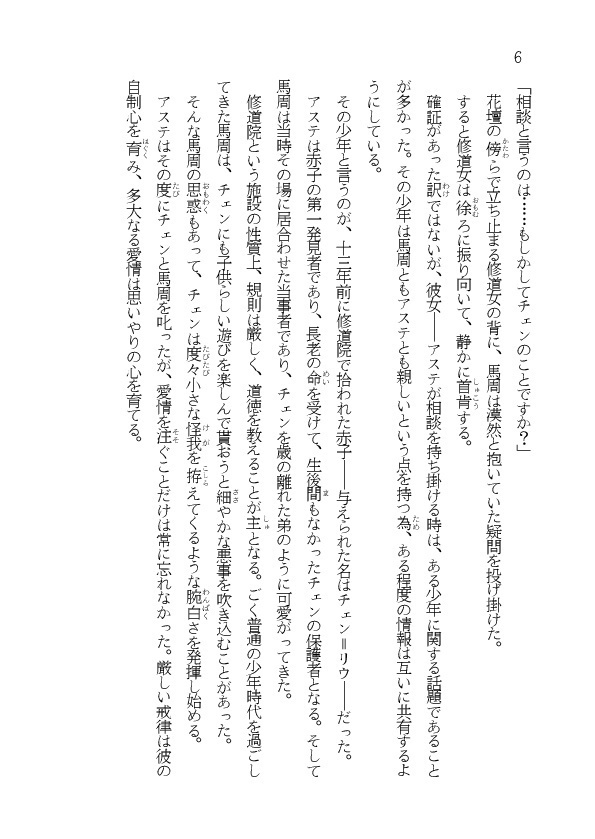 6
「相談と言うのは……もしかしてチェンのことですか?」
花壇の傍らで立ち止まる修道女の背に、馬周は漠然と抱いていた疑問を投げ掛けた。
すると修道女は徐ろに振り向いて、静かに首肯する。
確証があった訳ではないが、彼女――アステが相談を持ち掛ける時は、ある少年に関する話題であること
が多かった。その少年は馬周ともアステとも親しいという点を持つ為、ある程度の情報は互いに共有するよ
うにしている。
その少年と言うのが、十三年前に修道院で拾われた赤子――与えられた名はチェン＝リウ――だった。
アステは赤子の第一発見者であり、長老の命を受けて、生後間もなかったチェンの保護者となる。そして
馬周は当時その場に居合わせた当事者であり、チェンを歳の離れた弟のように可愛がってきた。
修道院という施設の性質上、規則は厳しく、道徳を教えることが主となる。ごく普通の少年時代を過ごし
てきた馬周は、チェンにも子供らしい遊びを楽しんで貰おうと細やかな悪事を吹き込むことがあった。
そんな馬周の思惑もあって、チェンは度々小さな怪我を拵えてくるような腕白さを発揮し始める。
アステはその度にチェンと馬周を叱ったが、愛情を注ぐことだけは常に忘れなかった。厳しい戒律は彼の
自制心を育み、多大なる愛情は思いやりの心を育てる。